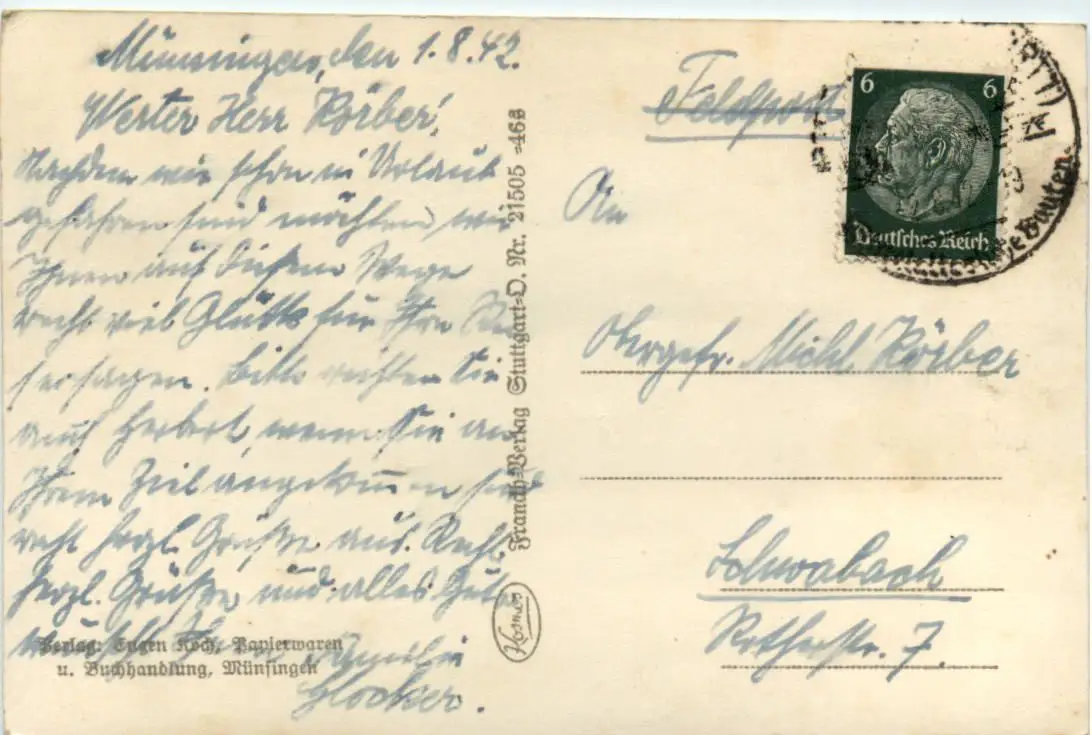 Münsingen, den 1.8.42.
Werter Herr Körber!
Nachdem wir schon in Urlaub
gefahren sind möchten wir
Ihnen auf diesem Wege
recht viel Glück für Ihre
ersagen. Bitte richten Sie
auch Herbert, wenn Sie an
Ihrem Ziel angekommen sind
recht herzl. Grüße aus. Recht
herzl. Grüße und alles Gute
Familie
Glocker.
Verlag: Eugen Koch, Papierwaren
u. Buchhandlung, Münsingen
Franckh-Verlag Stuttgart-O. Nr. 21505 -468
Kosmos
Feldpost
6 6
Deutsches Reich
Bauten
An
Obergefr. Michl Körber
Schwabach
Rotherstr. 7.